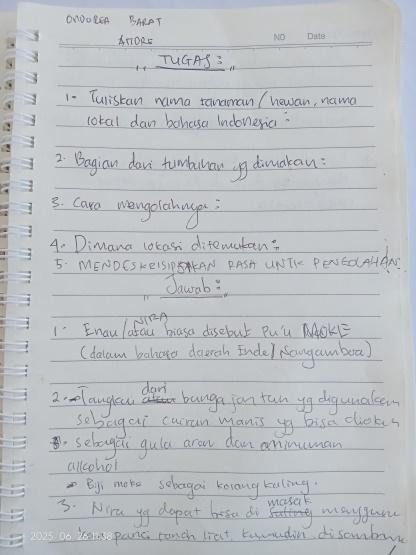 ONDOREA BARAT
NO Date
" TUGAS : "
1. Tuliskan nama tanaman / hewan, nama
lokal dan bahasa Indonesia :
2. Bagian dari tumbuhan yg dimakan :
3. Cara mengolahnya :
4. Dimana lokasi ditemukan :
5. MENDESKRISIPSIKAN RASA UNTUK PENGOLAHAN
" Jawab : "
NIRA
1. Enau / atau biasa disebut Pu'u MOKE
(dalam bahasa daerah Ende /
dari
2. Tangkai bunga jantan yg digunakan
sebagai cairan manis yg bisa
sebagai gula aren dan minuman
alcohol
Biji moke sebagai kolang kaling.
masak
3. Nira yg dapat bisa di
panci tanah liat, kemudian
2025.06.26 11:38